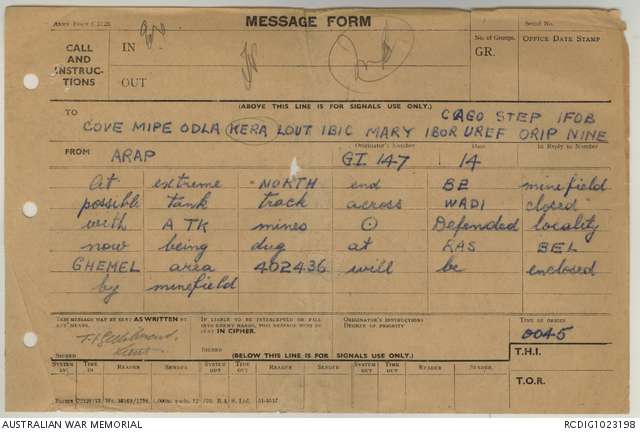 MESSAGE FORM
Serial No.
CALL
AND
INSTRUC-
TIONS
IN
OUT
No. of Groups.
GR.
OFFICE DATE STAMP
(ABOVE THIS LINE IS FOR SIGNALS USE ONLY.)
TO
CAGO STEP IFOB
COVE MIPE ODLA KERA LOUT IBIC MARY IBOR UREF ORIP NINE
FROM
Originator's Number
Date
In Reply to Number
ARAP GI 147 14
At extreme NORTH end BE minefield
possible tank track across WADI closed
with A TK mines ⊙ Defended locality
now being dug at RAS BEL
GHEMEL area 402436 will be enclosed
by minefield
THIS MESSAGE MAY BE SENT AS WRITTEN BY
ANY MEANS.
IF LIABLE TO BE INTERCEPTED OR FALL
INTO ENEMY HANDS, THIS MESSAGE MUST BE
SENT IN CIPHER.
ORIGINATOR'S INSTRUCTIONS
DEGREE OF PRIORITY
TIME OF ORIGIN
0045
SIGNED
SIGNED
(BELOW THIS LINE IS FOR SIGNALS USE ONLY.)
T.H.I.
SYSTEM IN
TIME IN
READER
SENDER
SYSTEM OUT
TIME OUT
READER
SENDER
SYSTEM OUT
TIME OUT
READER
SENDER
T.O.R.
AUSTRALIAN WAR MEMORIAL
RCDIG1023198